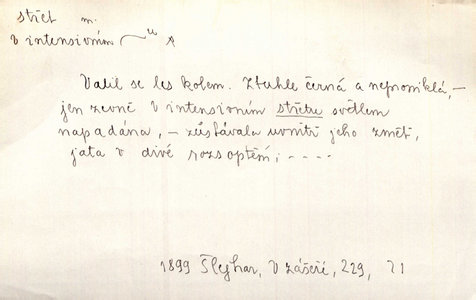 střet m.
v intensivním ~u A
Valil se les kolem. Ztuhle černá a neproniklá, –
jen zevně v intensivním střetu světlem
napadána, – zůstávala uvnitř jeho změt,
jata v divé rozsoptění; – – – –
1899 Šlejhar, V zášeří, 229, 21